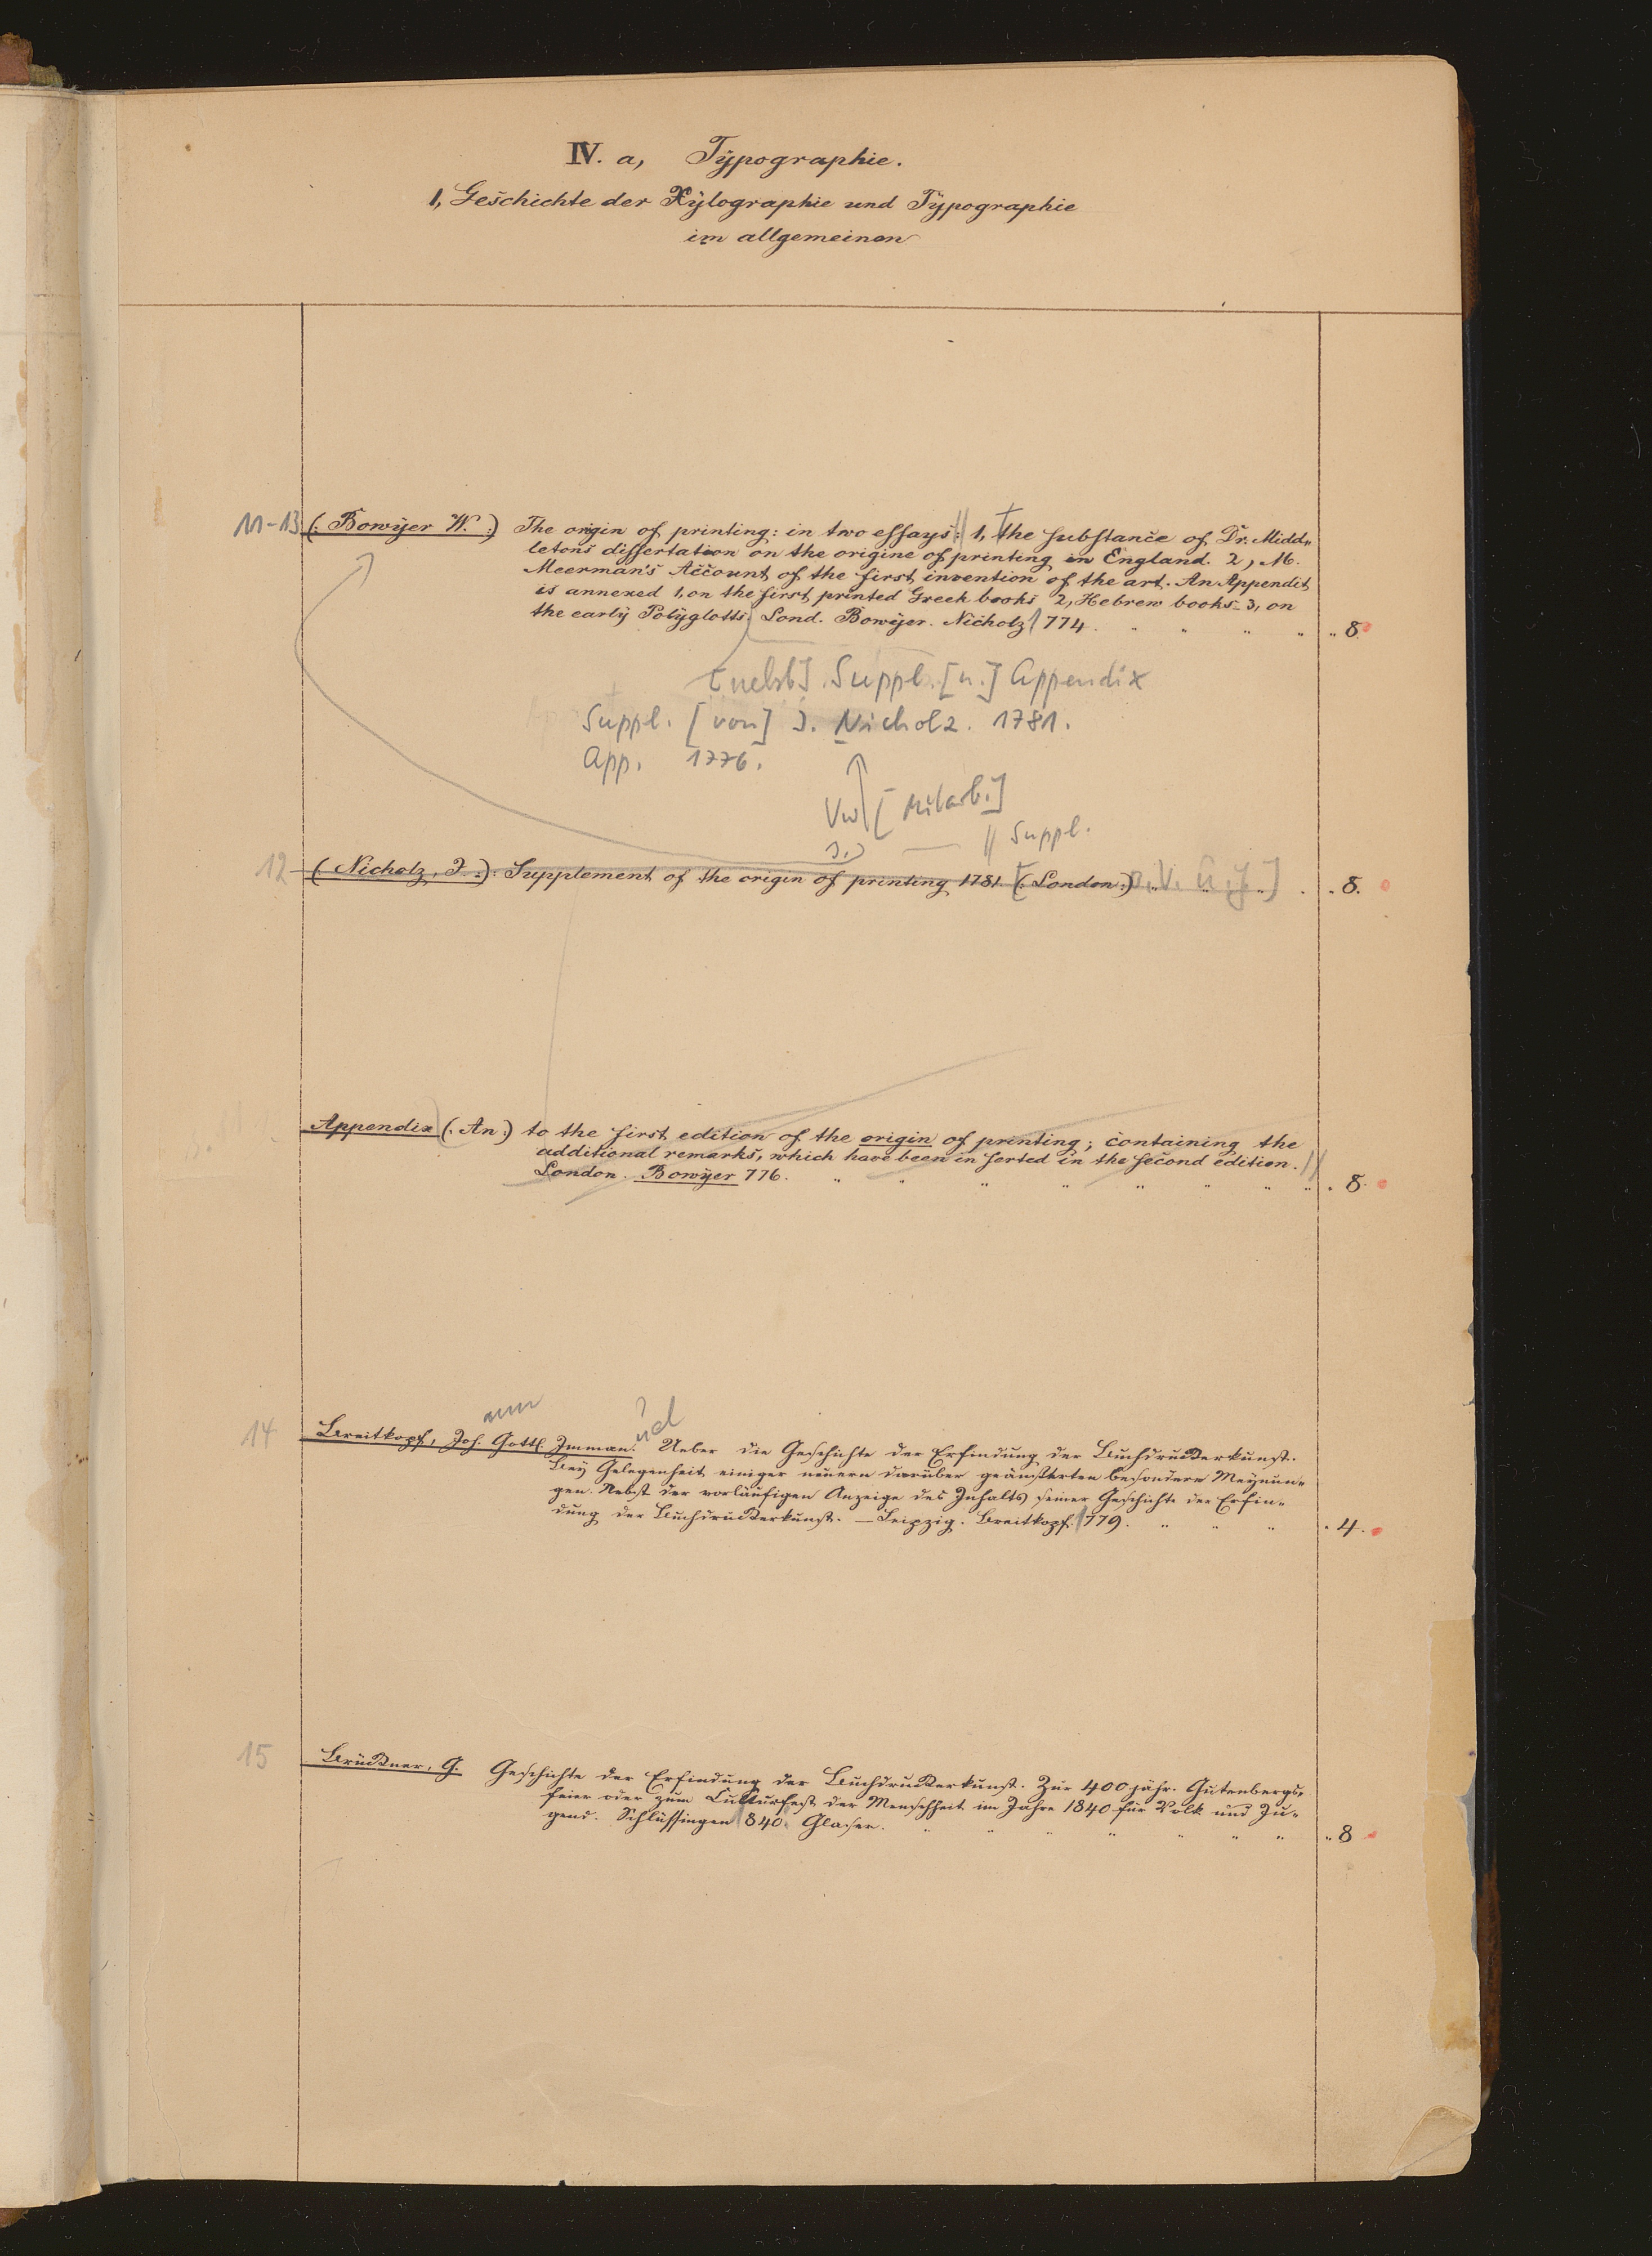 IV. a, Typographie.
1, Geschichte der Xylographie und Typographie
im allgemeinen
11-13 (: Bowyer W. :) The origin of printing: in two essays: // 1, the substance of Dr. Midd„
letons dissertation on the origine of printing in England. 2, M.
Meerman's Account of the first invention of the art. An Appendix
is annexed 1, on the first printed Greek books 2, Hebrew books - 3, on
the early Polyglotts. Lond. Bowyer. Nicholz / 774. „ „ „ „ „ 8.
[nebst] Suppl. [u.] Appendix
Suppl. [von] J. Nicholz. 1781.
App. 1776.
Vw [Mitarb.]
J.) — // Suppl.
12 (Nicholz, J. :) : Supplement of the origin of printing 1781 (: London :) „ „ „ . „ 8.
Appendix (: An :) to the first edition of the origin of printing; containing the
additional remarks, which have been inserted in the second edition. //
London. Bowyer 776. „ „ „ „ „ „ „ „ „ 8.
14 Breitkopf, Joh. Gottl. Imman. Ueber die Geschichte der Erfindung der Buchdruckerkunst.
Bey Gelegenheit einiger neuern darüber geäußerten besondern Meynun-
gen. Nebst der vorläufigen Anzeige des Inhalts seiner Geschichte der Erfin-
dung der Buchdruckerkunst. — Leipzig. Breitkopf. / 779. „ „ „ „ 4.
15 Brückner, G. Geschichte der Erfindung der Buchdruckerkunst. Zur 400 jähr. Gutenbergs-
feier oder zum Culturfest der Menschheit im Jahre 1840 für Volk und Ju-
gend. Schlüssingen / 840. Glaser. „ „ „ „ „ „ „ „ 8